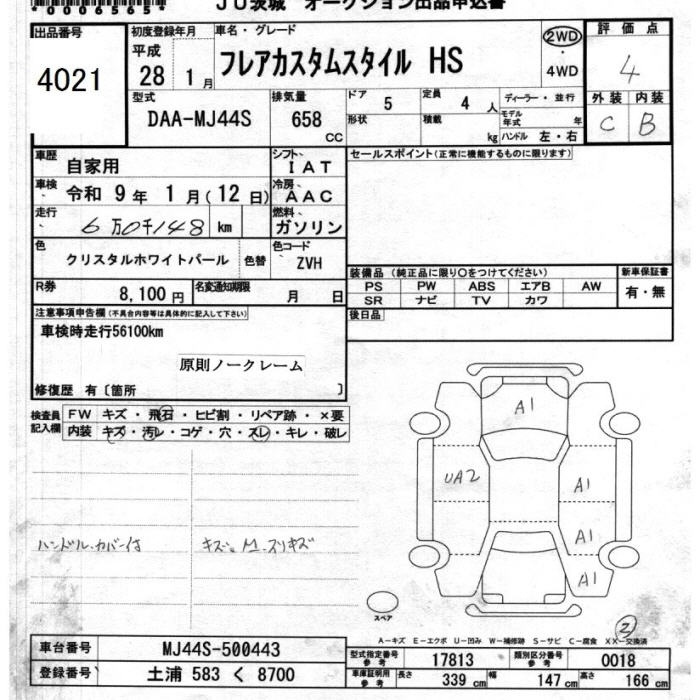 *0006565*
JU茨城 オークション出品申込書
出品番号
4021
初度登録年月
平成
28 1月
車名・グレード
フレアカスタムスタイル HS
2WD
・
4WD
評価点
4
外装 内装
C B
型式
DAA-MJ44S
排気量
658
CC
ドア
5
定員
4 人
形状
積載
kg
ディーラー・並行
モデル年式
年
ハンドル 左・右
車歴
自家用
シフト
IAT
車検
令和 9年 1月(12日)
冷房
AAC
走行
6万0千148 km
燃料
ガソリン
色
クリスタルホワイトパール
色替
色コード
ZVH
R券
8,100円
名変通知期限
月 日
セールスポイント(正常に機能するものに限ります)
装備品 (純正品に限り○をつけてください)
PS PW ABS エアB AW
SR ナビ TV カワ
新車保証書
有・無
後日品
注意事項申告欄(不具合内容等は具体的に記入して下さい)
車検時走行56100km
原則ノークレーム
修復歴 有〔箇所 〕
検査員記入欄
FW キズ・飛石・ヒビ割・リペア跡・×要
内装 キズ・汚レ・コゲ・穴・スレ・キレ・破レ
ハンドル.カバー付
キズ。M.スリキズ
A1
UA2
A1
A1
A1
スペア
A-キズ E-エクボ U-凹み W-補修跡 S-サビ C-腐食 XX-交換済
車台番号
MJ44S-500443
登録番号
土浦 583 く 8700
型式指定番号
参考
17813
類別区分番号
参考
0018
車庫証明用
参考
長さ
339 cm
幅
147 cm
高さ
166 cm